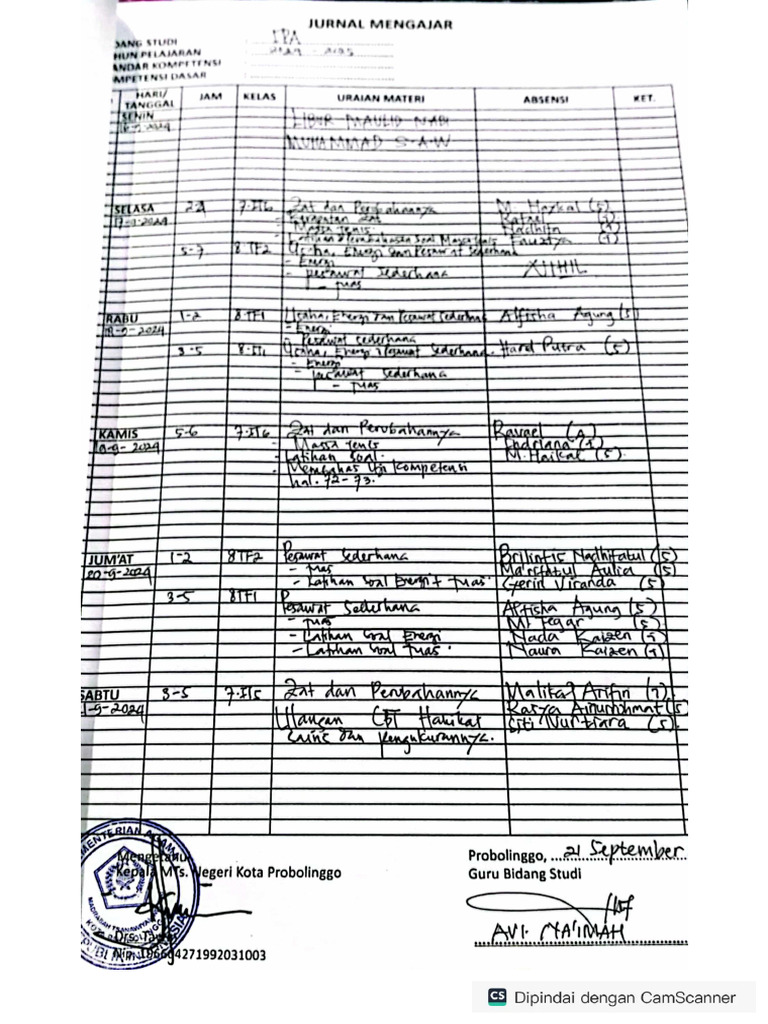 JURNAL MENGAJAR
DANG STUDI : IPA
HUN PELAJARAN : 2024 - 2025
ANDAR KOMPETENSI :
MPETENSI DASAR :
HARI/ TANGGAL JAM KELAS URAIAN MATERI ABSENSI KET.
SENIN LIBUR MAULID NABI
16-9-2024 MUHAMMAD S.A.W
SELASA 7.IT6 Zat dan Perubahannya M. Haykal (S)
17-9-2024 - Kerapatan Zat Rafael
- Massa Jenis Nadhifa
- Latihan & Pembahasan Soal Massa Jenis
5-7 8.TF2 Usaha, Energi dan Pesawat Sederhana
- Energi NIHIL
- Pesawat Sederhana
- Tuas
RABU 1-2 8.TF1 Usaha, Energi dan Pesawat Sederhana Alfisha Agung (S)
18-9-2024 - Energi
- Pesawat Sederhana
3-5 8.IT1 Usaha, Energi Pesawat Sederhana. Putra (S)
- Energi
- Pesawat Sederhana
- Tuas
KAMIS 5-6 7.IT6 Zat dan Perubahannya Ravael (A)
- Massa Jenis Endriana
- Latihan Soal. M. Haikal (S)
- Membahas Uji Kompetensi
hal. 72-73.
JUM'AT 1-2 8TF2 Pesawat Sederhana Nadhifatul (S)
20-9-2024 - Tuas Aulia (S)
- Latihan Soal Energi + Tuas Viranda (S)
3-5 8TF1 Pesawat Sederhana Alfisha Agung (S)
- Tuas M. Tegar (S)
- Latihan Soal Energi Nada Kaizen
- Latihan Soal Tuas. Naura Kaizen
SABTU 3-5 7.IT5 Zat dan Perubahannya Arifin
1-9-2024 Ulangan CBT Hakikat Rasya
Sains dan Pengukurannya. Siti Nurtiara (S)
Mengetahui Probolinggo, 21 September
Kepala MTs. Negeri Kota Probolinggo Guru Bidang Studi
AVI NA'IMAH
Dipindai dengan CamScanner